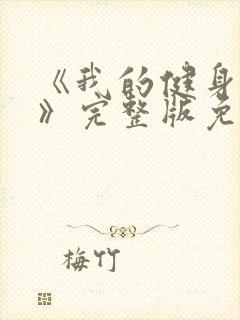 《我的健身
》完整版免
梅竹